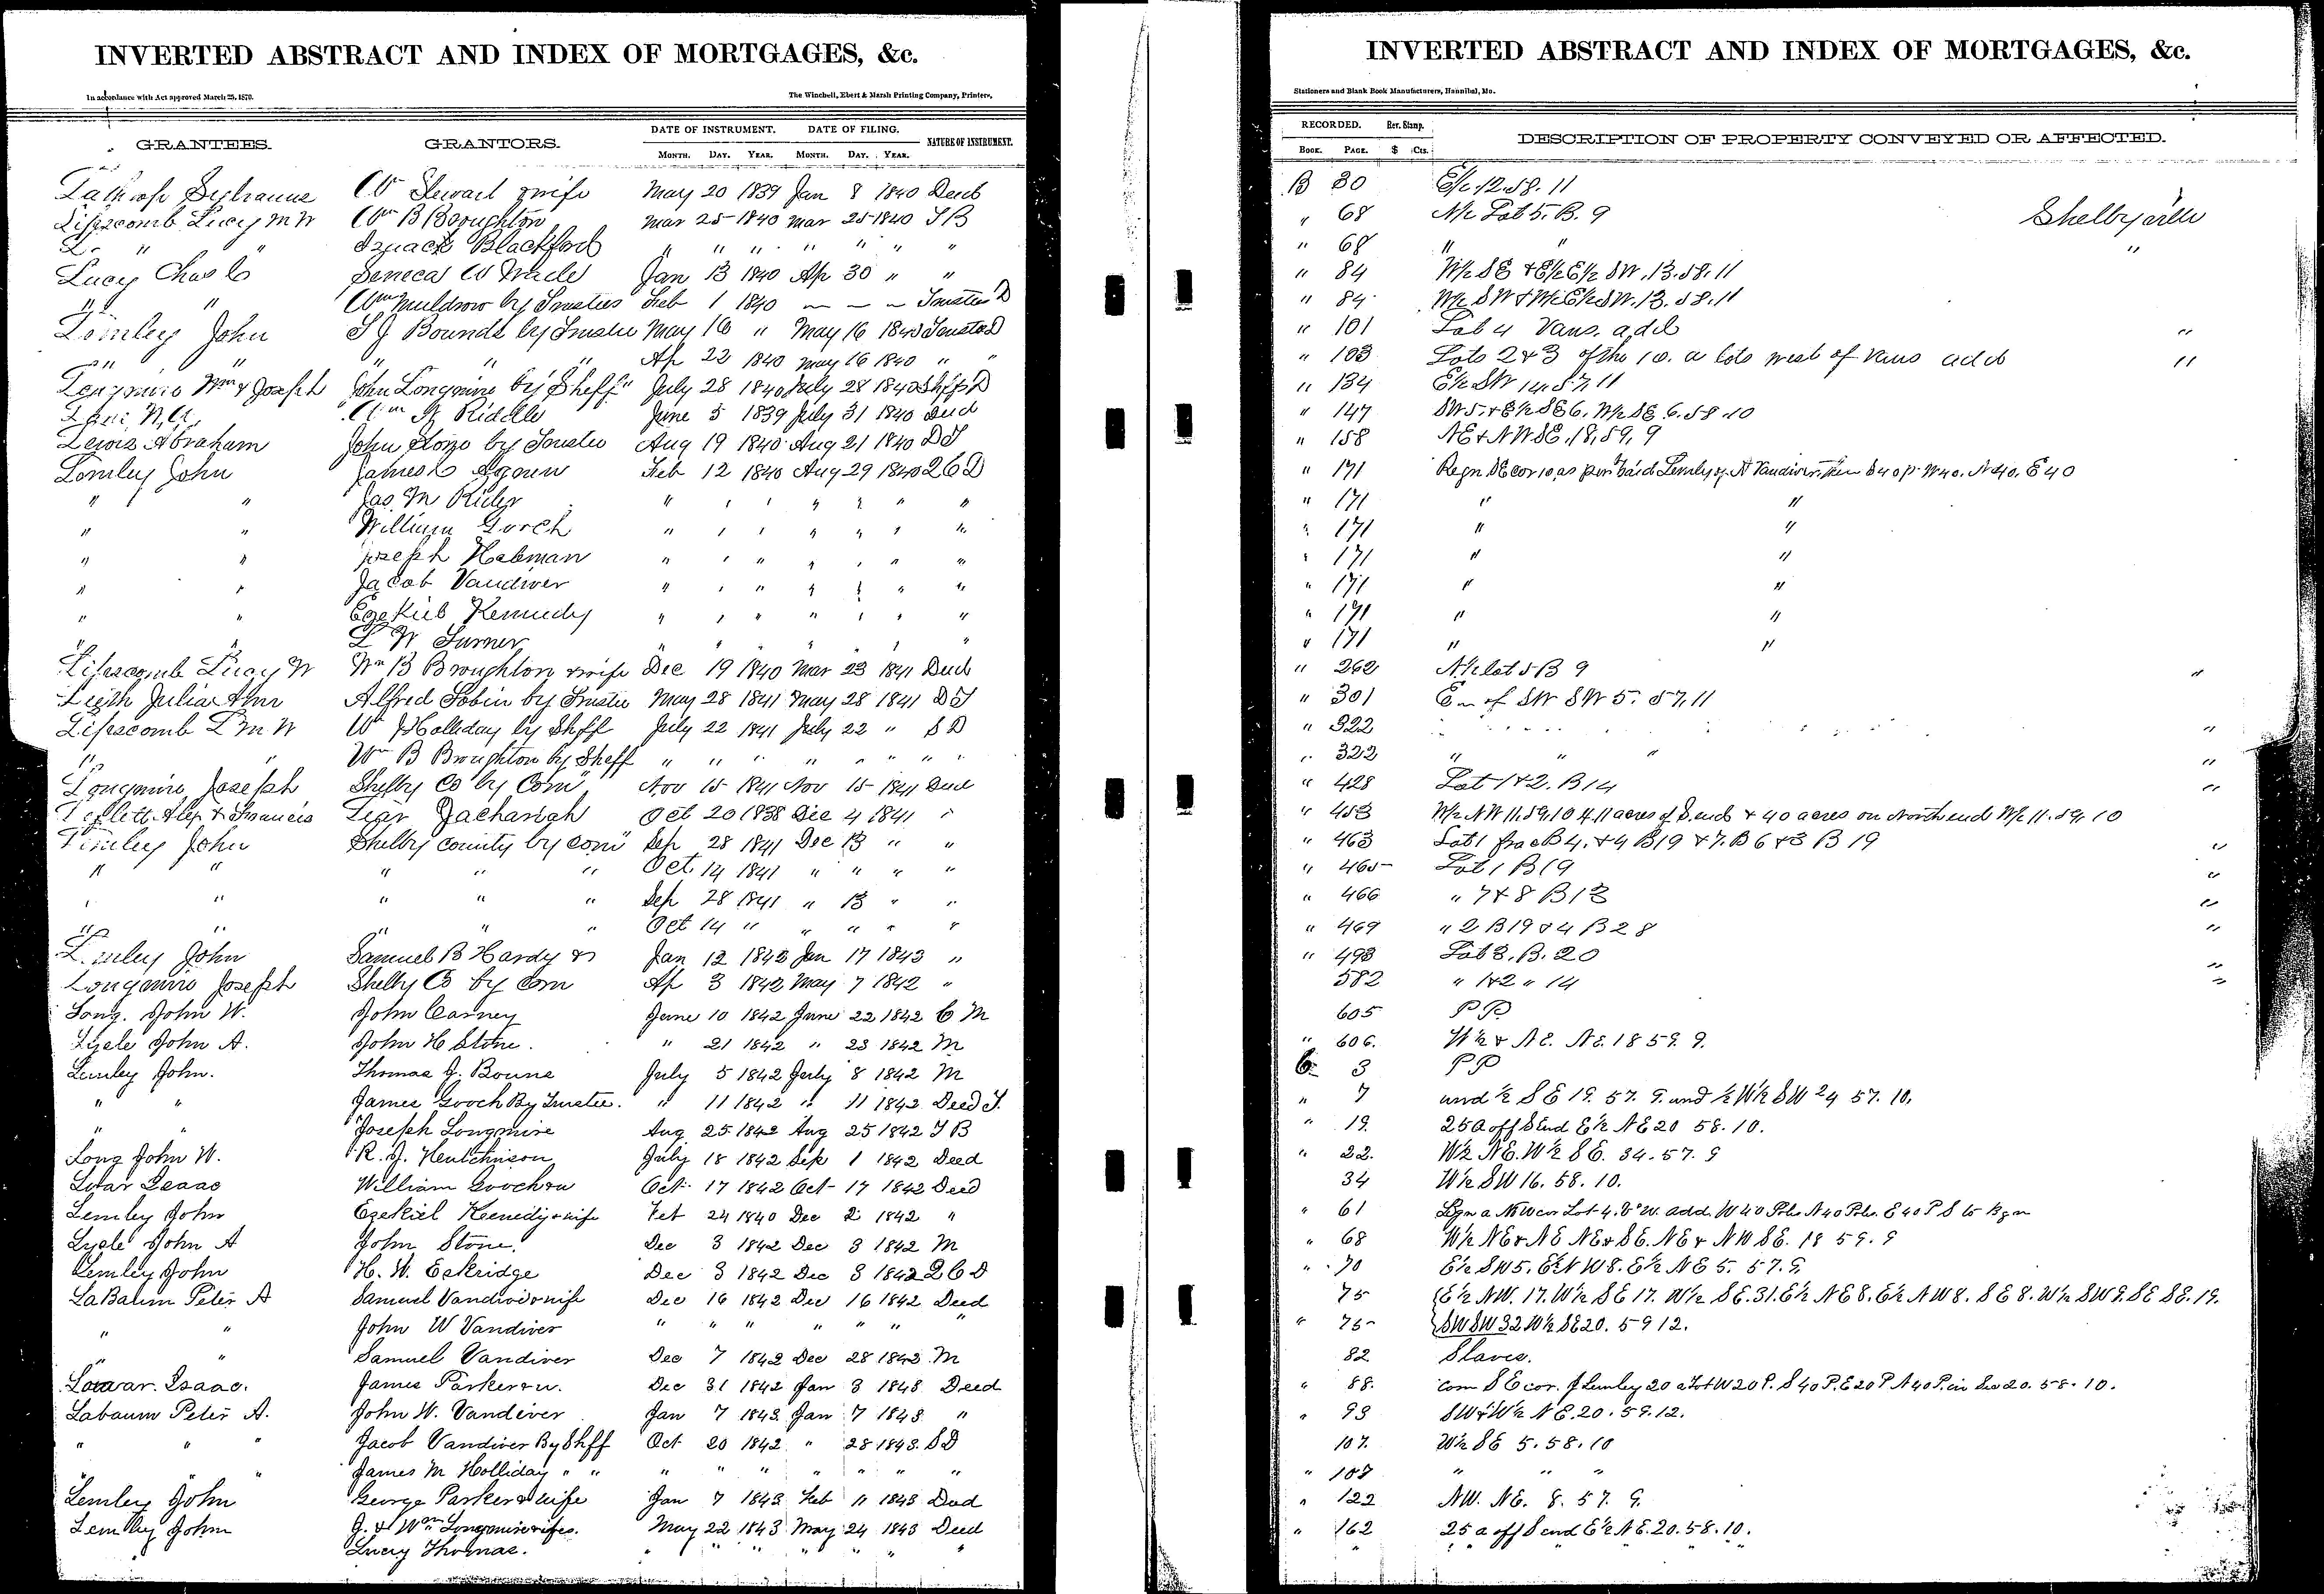 INVERTED ABSTRACT AND INDEX OF MORTGAGES, &c.
In accordance with Act approved March 25, 1870.
The Winchell, Ebert & Marsh Printing Company, Printers,
GRANTEES. GRANTORS. DATE OF INSTRUMENT. DATE OF FILING. NATURE OF INSTRUMENT.
MONTH. DAY. YEAR. MONTH. DAY. YEAR.
Stewart & wife May 20 1839 Jan 8 1840 Deed
Lipscomb Lucy M W Wm B Broughton Mar 25 1840 Mar 25 1840 T B
" Blackford " " " " " "
Lucy Chas Seneca W Jan 13 1840 Ap 30 " "
" " Wm Muldrow by Trustees Feb 1 1840 — — — Trustee D
Lemley John S J Bounds by Trustee May 16 " May 16 1840 Trustee D
" " " " Ap 22 1840 May 16 1840 " "
Longmire Wm & Joseph John Longmire by Sheff" July 28 1840 July 28 1840 Shff D
Wm R Riddle June 5 1839 July 31 1840 Deed
Lewis Abraham John Stone by Trustee Aug 19 1840 Aug 21 1840 D T
Lemley John James Feb 12 1840 Aug 29 1840 2 C D
" " Jas M Rider " " " " " " "
" " William Gooch " " " " " " "
" " Joseph Holeman " " " " " " "
" " Jacob Vandiver " " " " " " "
" " Ezekiel Kennedy " " " " " " "
" " L W Turner " " " " " " "
Lipscomb Lucy W Wm B Broughton & wife Dec 19 1840 Mar 23 1841 Deed
Leigh Julia Ann Alfred Tobin by Trustee May 28 1841 May 28 1841 D T
Lipscomb L M W W J Holliday by Shff July 22 1841 July 22 " S D
" " Wm B Broughton by Sheff " " " " " " "
Longmire Joseph Shelby Co by Com" Nov 15 1841 Nov 15 1841 Deed
Alex & Francis Zachariah Oct 20 1838 Dec 4 1841 "
Lemley John Shelby County by Com" Sep 28 1841 Dec 13 " "
" " " " " Oct 14 1841 " " " "
" " " " " Sep 28 1841 " 13 " "
" " " " " Oct 14 " " " " "
Lemley John Samuel B Hardy & Jan 12 1842 Jan 17 1843 "
Longmire Joseph Shelby Co by Com Ap 3 1842 May 7 1842 "
Long. John W. John Carney June 10 1842 June 22 1842 C M
Lyele John A. John H Stone. " 21 1842 " 23 1842 M
Lemley John. Thomas J. Boune July 5 1842 July 8 1842 M
" " James Gooch By Trustee. " 11 1842 " 11 1842 Deed T.
" " Joseph Longmire Aug 25 1842 Aug 25 1842 T B
Long John W. R. J. Hentchinson July 18 1842 Sep 1 1842 Deed
Isaac William Gooch & w Oct. 17 1842 Oct- 17 1842 Deed
Lemley John Ezekiel Kenedy & wife Feb 24 1840 Dec 2 1842 "
Lyele John A John Stone. Dec 3 1842 Dec 3 1842 M
Lemley John H. W. Eskridge Dec 3 1842 Dec 3 1842 2 C D
LaBaum Peter A Samuel Vandiver & wife Dec 16 1842 Dec 16 1842 Deed
" " John W Vandiver " " " " " " "
" " Samuel Vandiver Dec 7 1842 Dec 28 1842 M
Isaac. James Parker & w. Dec 31 1842 Jan 3 1843 Deed
Labaum Peter A. John W. Vandiver Jan 7 1843 Jan 7 1843 "
" " " Jacob Vandiver By Shff Oct 20 1842 " 28 1843. S D
" " James M Holliday " " " " " " " " "
Lemley John George Parker & wife Jan 7 1843 Feb 11 1843 Deed
Lemley John J. & Wm Longmire & wifes. May 22 1843 May 24 1843 Deed
Lucy Thomas. " " " " " " "
INVERTED ABSTRACT AND INDEX OF MORTGAGES, &c.
Stationers and Blank Book Manufacturers, Hannibal, Mo.
RECORDED. Rev. Stamp. DESCRIPTION OF PROPERTY CONVEYED OR AFFECTED.
BOOK. PAGE. $ Cts.
B 30 E/2 12.58.11
" 68 N/2 Lot 5. B. 9 Shelbyville
" 68 " " "
" 84 W/2 SE & E/2 E/2 SW. 13.58.11
" 84 W/2 SW & W/2 E/2 SW. 13.58.11
" 101 Lot 4 Vans. add "
" 103 Lots 2 & 3 of the 10. a lots west of Vans add "
" 134 E/2 SW 14.57.11
" 147 SW 5. & E/2 SE 6. W/2 SE 6. 58 10
" 158 NE & NW SE. 18, 59, 9
" 171 Begn SE cor 10, as per Lemley 40 p. W 40. N 40. E 40
" 171 " "
" 171 " "
" 171 " "
" 171 " "
" 171 " "
" 171 " "
" 262 N/2 lot 5 B 9 "
" 301 End of SW SW 5. 57, 11
" 322 "
" 322 " " " "
" 428 Lot 1 & 2. B 14 "
" 453 W/2 NW 11.59.10 4.11 acres of S. end & 40 acres on North end W/2 11.59.10
" 463 Lot 1 frac B 4. & 4 B 19 & 7. B 6 & 3 B 19 "
" 465 Lot 1 B 19 "
" 466 " 7 & 8 B 13 "
" 469 " 2 B 19 & 4 B 28 "
" 493 Lot 3. B. 20 "
582 " 1 & 2 " 14 "
605 P P
" 606. W/2 & N E. N E. 18 59. 9.
C 3 P P
" 7 und ½ S E 19. 57. 9. und ½ W ½ SW 24 57. 10.
" 19. 25 a off S End E ½ N E 20 58. 10.
" 22. W ½ N E. W ½ S E. 34. 57. 9
34 W ½ SW 16. 58. 10.
" 61 Bgn a NW cor Lot 4. V W. add. W 40 Pols. N 40 Pols. E 40 P S to Bgn
" 68 W ½ N E & N E N E & S E. N E & N W S E. 18 59. 9
" 70 E ½ SW 5. E ½ N W 8. E ½ N E 5. 57. 9.
75 E ½ N W. 17. W ½ S E 17. W ½ S E. 31. E ½ N E 8. E ½ N W 8. S E 8. W ½ SW 9. S E S E. 19.
" 75 SW SW 32 W ½ S E 20. 59 12.
82 Slaves.
" 88. Com S E cor. J Lemley 20 a lot W 20 P. S 40 P. E 20 P N 40 P. in Sec 20. 58. 10.
" 93 SW & W ½ N E. 20. 59. 12.
107. W ½ S E 5. 58. 10
" 107 " " "
" 122 N W. N E. 8. 57. 9.
" 162 25 a off S end E ½ N E. 20. 58. 10.
" " " " "